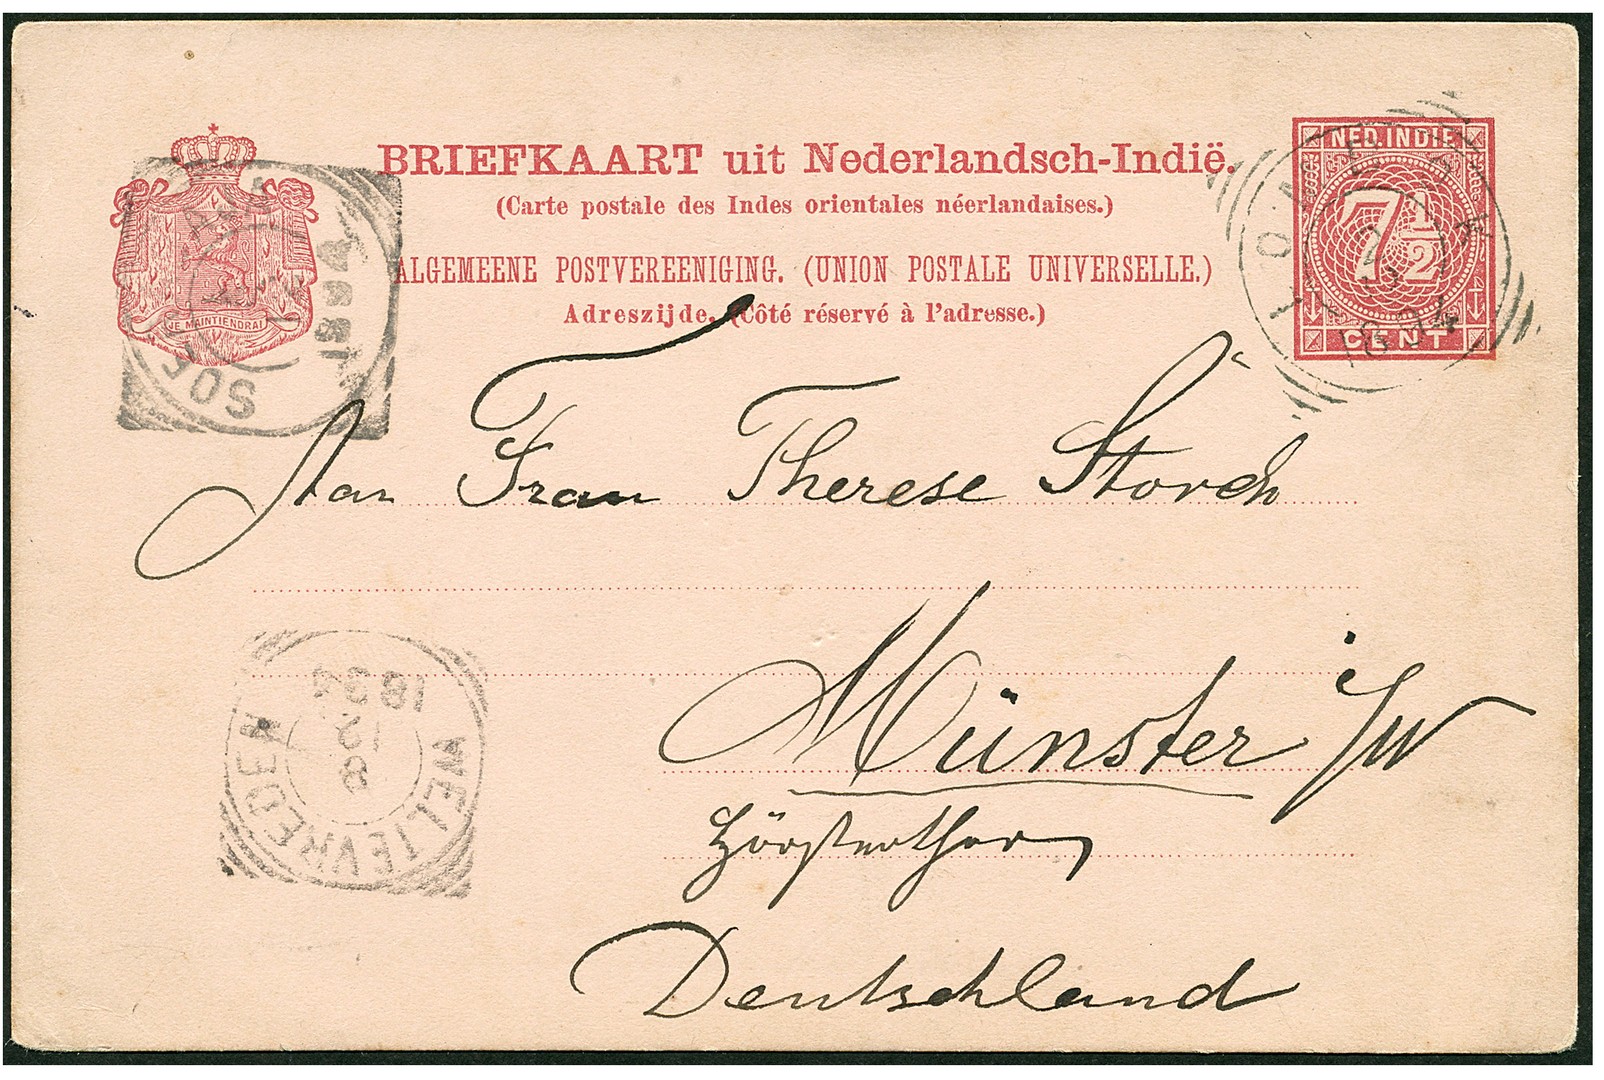 BRIEFKAART uit Nederlandsch-Indië.
(Carte postale des Indes orientales néerlandaises.)
ALGEMEENE POSTVEREENIGING. (UNION POSTALE UNIVERSELLE.)
Adreszijde. (Côté réservé à l'adresse.)
JE MAINTIENDRAI
NED. INDIE
7½
CENT
1894
SOE
1894
An Frau Therese Storch
Münster i/W
Deutschland
WELTEVREDEN
8
12
1894